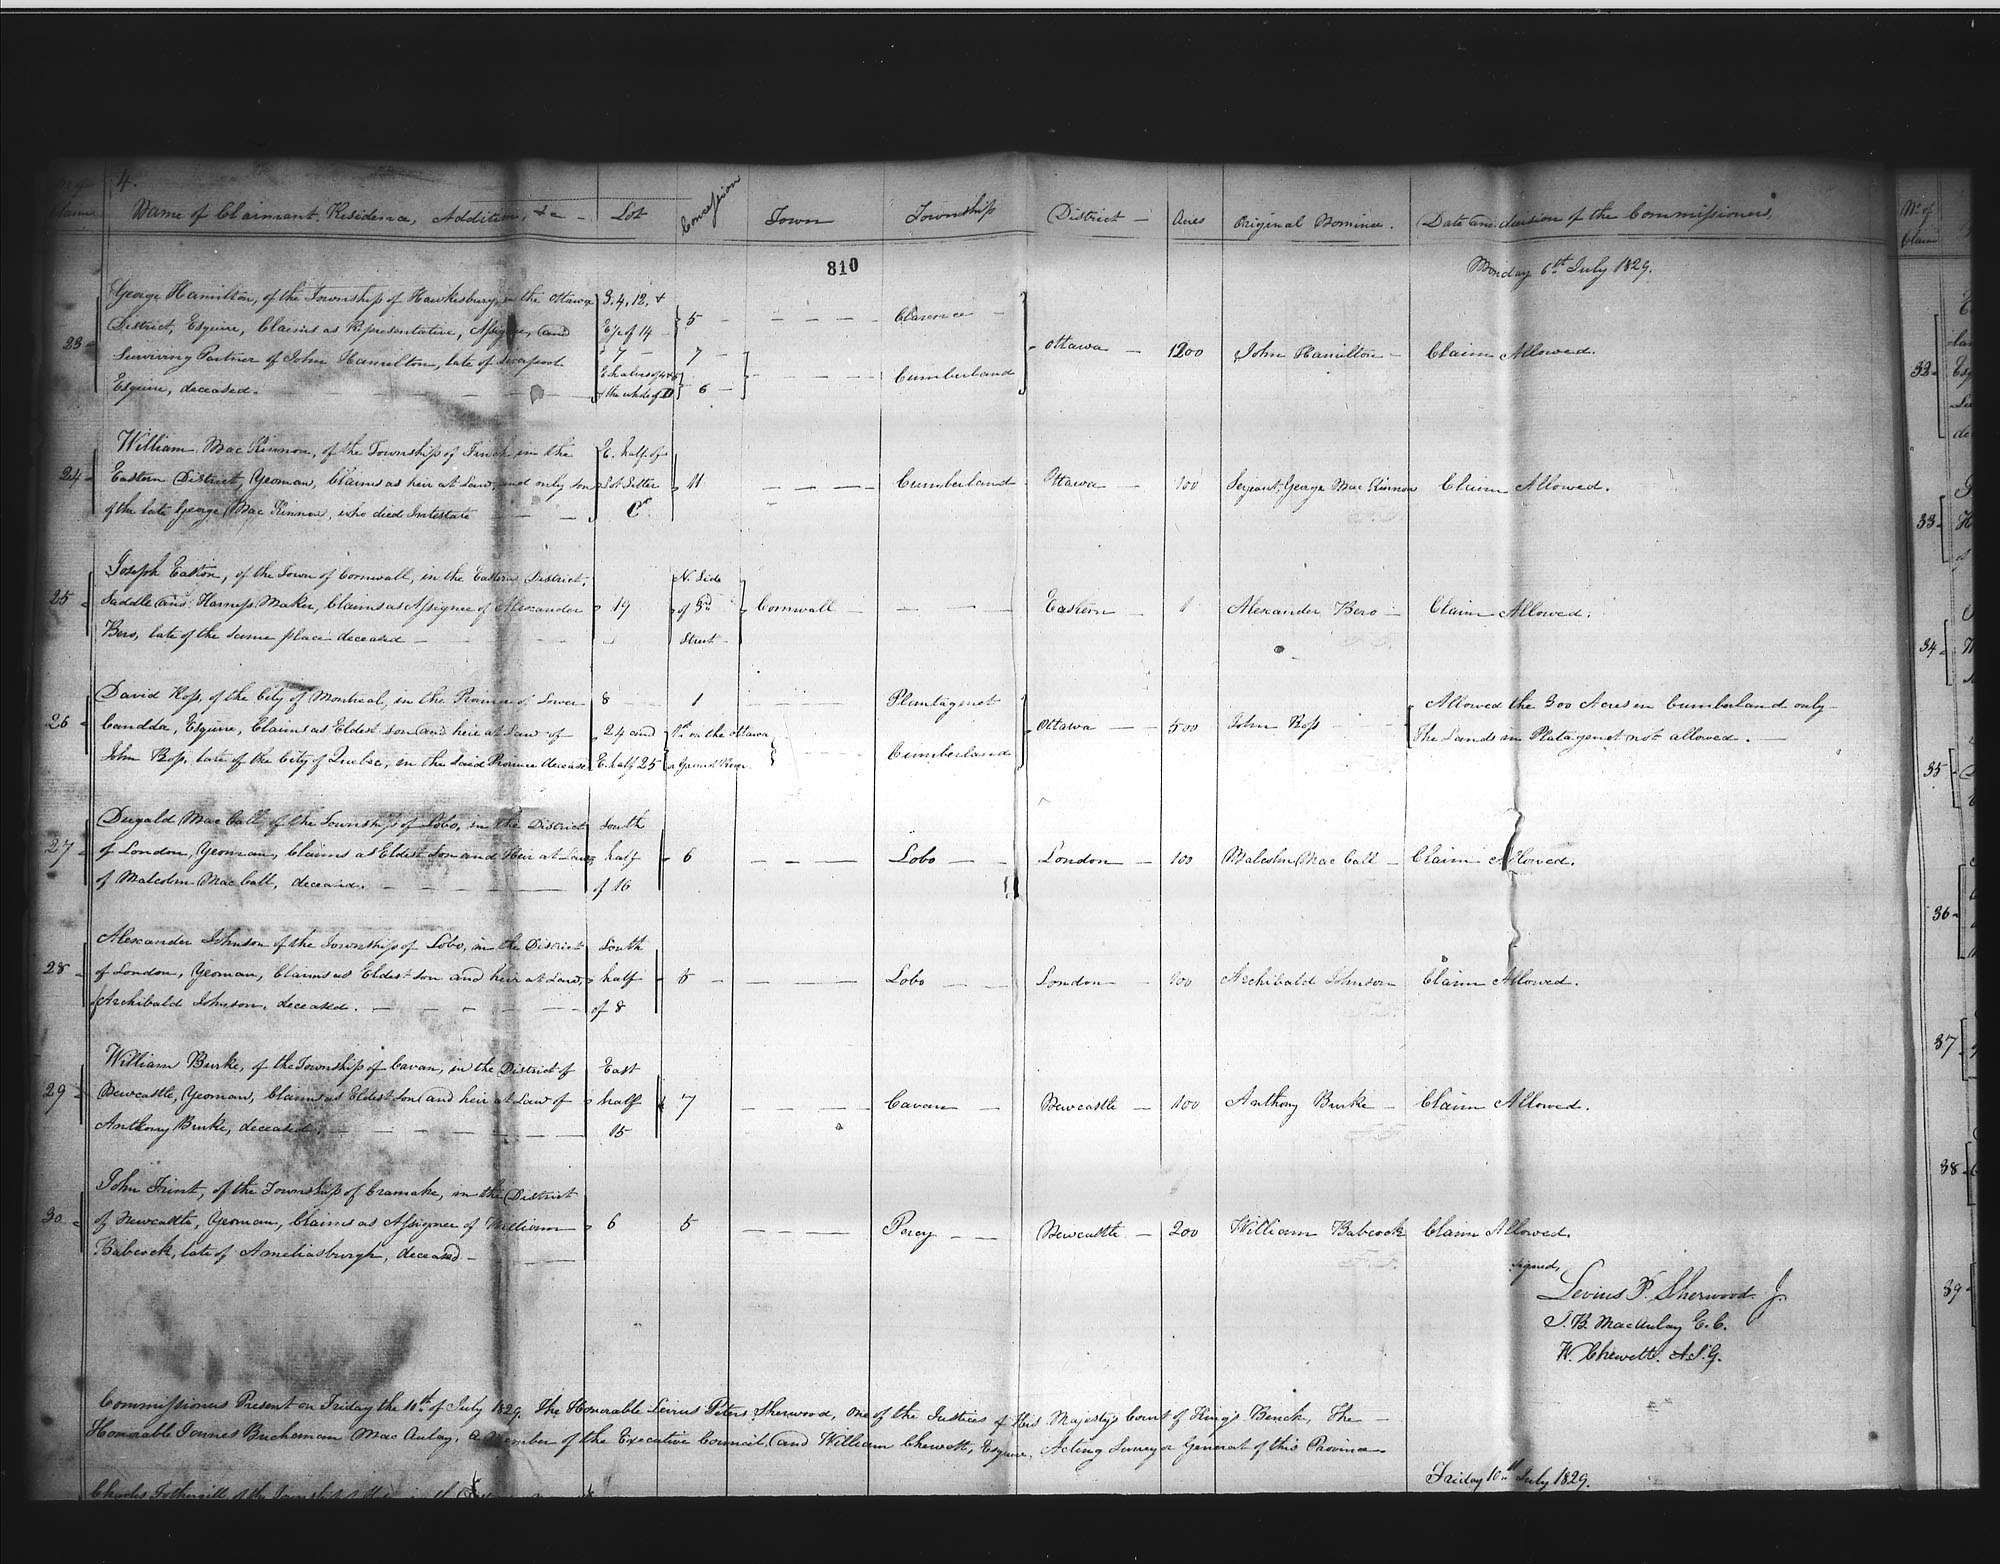 4.
Name of Claimant, Residence, Addition, &c - Lot Concession Town Township District - Acres Original Nominee. Date and decision of the Commissioners,
810
Monday 6th July 1829.
George Hamilton, of the Township of Hawkesbury, in the Ottawa
District, Esquire, Claims as Representative, Assignee, and
Surviving Partner of John Hamilton, late of Liverpool
Esquire, deceased.
3, 4, 12, +
E½ of 14
7
E. halves of 4 + 5
+ the whole of D
5
7
6
Clarence
Cumberland
23
Ottawa 1200 John Hamilton Claim Allowed.
William Mac Kinnon, of the Township of Finch in the
24 Eastern District, Yeoman, Claims as heir at Law, and only son
of the late George Mac Kinnon, who died Intestate
E. half of
Lot Letter
C
11 Cumberland Ottawa 100 Serjeant George Mac Kinnon Claim Allowed.
Joseph Easton, of the Town of Cornwall, in the Eastern District,
25 Saddle and Harness Maker, Claims as Assignee of Alexander
Bero, late of the same place deceased
19
N. Side
of 3rd
Street
Cornwall Eastern 1 Alexander Bero Claim Allowed.
David Ross, of the City of Montreal, in the Province of Lower
26 Canada, Esquire, Claims as Eldest son and heir at Law of
John Ross, late of the City of Quebec, in the said Province deceased
8 1 Plantagenet
24 and
E. half 25
1st on the Ottawa
or Grand River
Cumberland
Ottawa 500 John Ross
Allowed the 300 Acres in Cumberland only
The Lands in Platagenet not allowed.
Dugald Mac Call, of the Township of Lobo, in the District
27 of London, Yeoman, Claims as Eldest son and Heir at Law,
of Malcolm Mac Call, deceased.
South
half
of 16
6 Lobo London 100 Malcolm Mac Call Claim Allowed.
Alexander Johnson of the Township of Lobo, in the District
28 of London, Yeoman, Claims as Eldest son and heir at Law,
of Archibald Johnson, deceased.
South
half
of 8
5 Lobo London 100 Archibald Johnson Claim Allowed.
William Burke, of the Township of Cavan, in the District of
29 Newcastle, Yeoman, Claims as Eldest son and heir at Law of
Anthony Burke, deceased.
East
half
15
7 Cavan Newcastle 100 Anthony Burke Claim Allowed.
John Frint, of the Township of Cramahe, in the District
30 of Newcastle, Yeoman, Claims as Assignee of William
Babcock, late of Ameliasburgh, deceased
6 5 Percy Newcastle 200 William Babcock Claim Allowed.
Signed,
Levius P. Sherwood J.
J. B. Macaulay E. C.
W. Chewett. A.S.G.
Commissioners Present on Friday the 10th of July 1829. The Honorable Levius Peters Sherwood, one of the Justices of His Majesty's Court of King's Bench, The
Honorable James Buchanan Mac Aulay, a Member of the Executive Council, and William Chewett, Esquire, Acting Surveyor General of this Province
Friday 10th July 1829.
No of
Claim
32
33
34
35
36
37
38
39